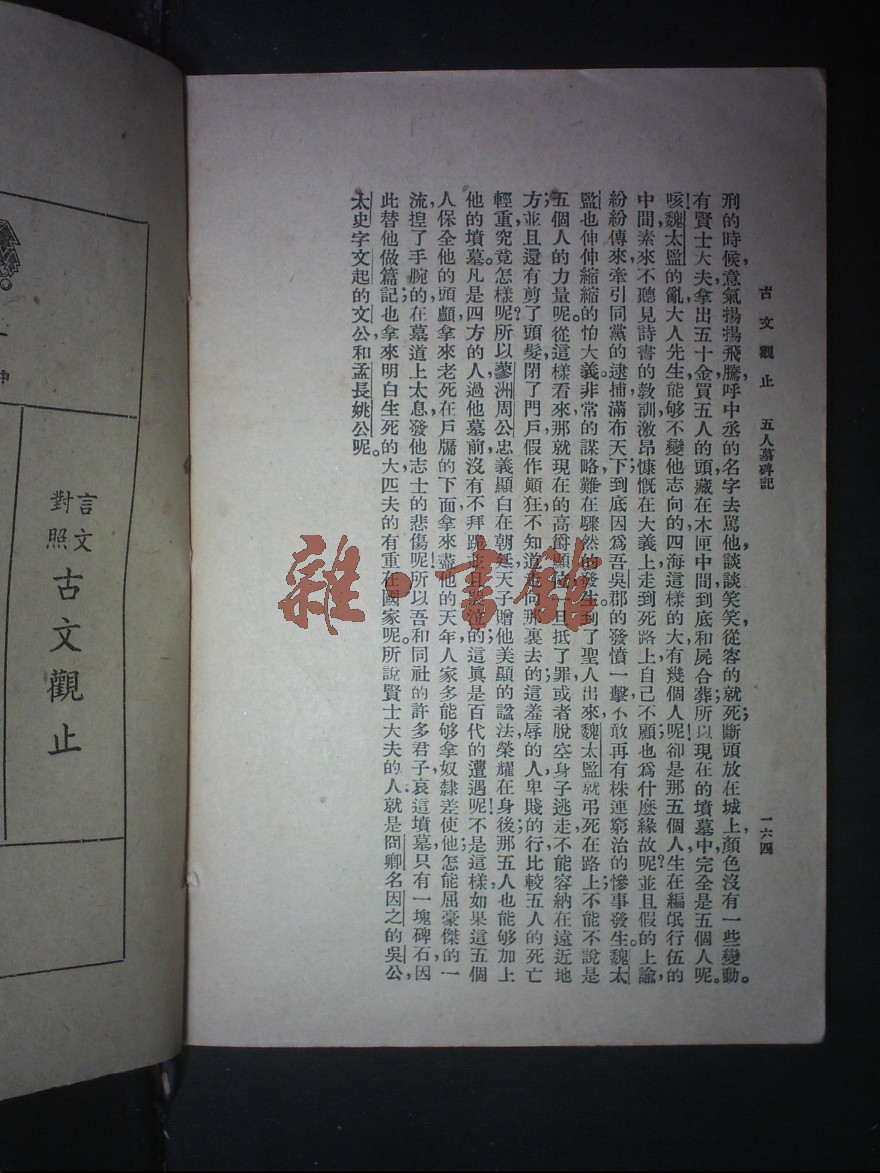 古文觀止 五人墓碑記 一六四
刑的時候,意氣揚揚飛騰,呼中丞的名字去罵他,談談笑笑,從容的就死;斷頭放在城上,顏色沒有一些變動。
有賢士大夫拿出五十金,買五人的頭藏在木匣中間,到底和屍合葬;所以現在的墳墓中,完全是五個人呢。
咳!魏太監的亂,大人先生能够不變他志向的,四海這樣的大,有幾個人呢!卻是那五個人,生在編氓行伍的
中間,素來不聽見詩書的敎訓,激昂慷慨在大義上,走到死路上自己不顧,也爲什麼緣故呢?並且假的上諭,
紛紛傳來,牽引同黨的逮捕,滿布天下;到底因爲吾吳郡的發憤一擊,不敢再有株連窮治的慘事發生;魏太
監也伸伸縮縮的怕大義,非常的謀略,難在驟然的發生,到了聖人出來,魏太監就弔死在路上,不能不說是
五個人的力量呢。從這樣看來,那就現在的高爵顯位,一旦抵了罪,或者脫空身子逃走,不能容納在遠近地
方;並且還有剪了頭髮,閉了門戶,假作顚狂,不知道走向那裏去的;這羞辱的人,卑賤的行,比較五人的死亡,
輕重究竟怎樣呢?所以蓼洲周公,忠義顯白在朝廷,天子贈他美顯的諡法,榮耀在身後;那五人也能够加上
他的墳墓。凡是四方的人,過他墓前,沒有不拜跪並且哀泣的,這眞是百代的遭遇呢!不是這樣,如果這五個
人保全他的頭顱,拿來老死在戶牖的下面,拿來盡他的天年,人家多能够拿奴隸差使他,怎能屈豪傑的一
流,揑了手腕的在墓道上太息,發他志士的悲傷呢!所以吾和同社的許多君子,哀這墳墓只有一塊碑石,因
此替他做篇記;也拿來明白生死的大,匹夫的有重在國家呢。所說賢士大夫的人,就是冏卿名因之的吳公,
太史字文起的文公,和孟長姚公呢。
言文
對照
古文觀止
雜·書舘